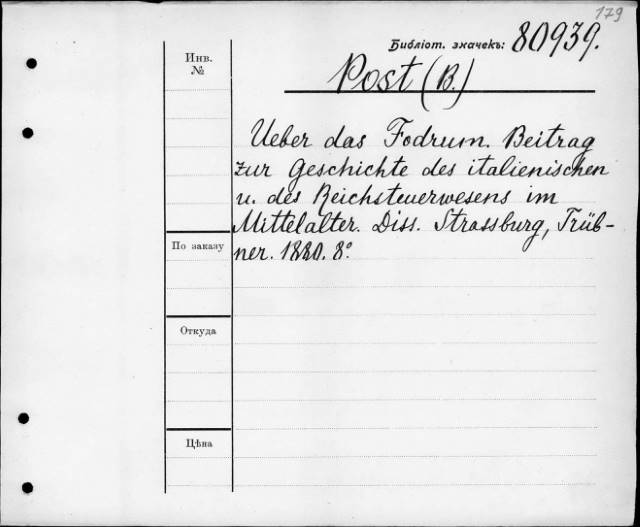 179
Библіот. значекъ: 80939.
Инв.
№
Post (B.)
Ueber das Fodrum. Beitrag
zur Geschichte des italienischen
u. des Reichsteuerwesens im
Mittelalter. Diss. Strassburg, Trüb-
ner. 1880. 8°.
По заказу
Откуда
Цѣна